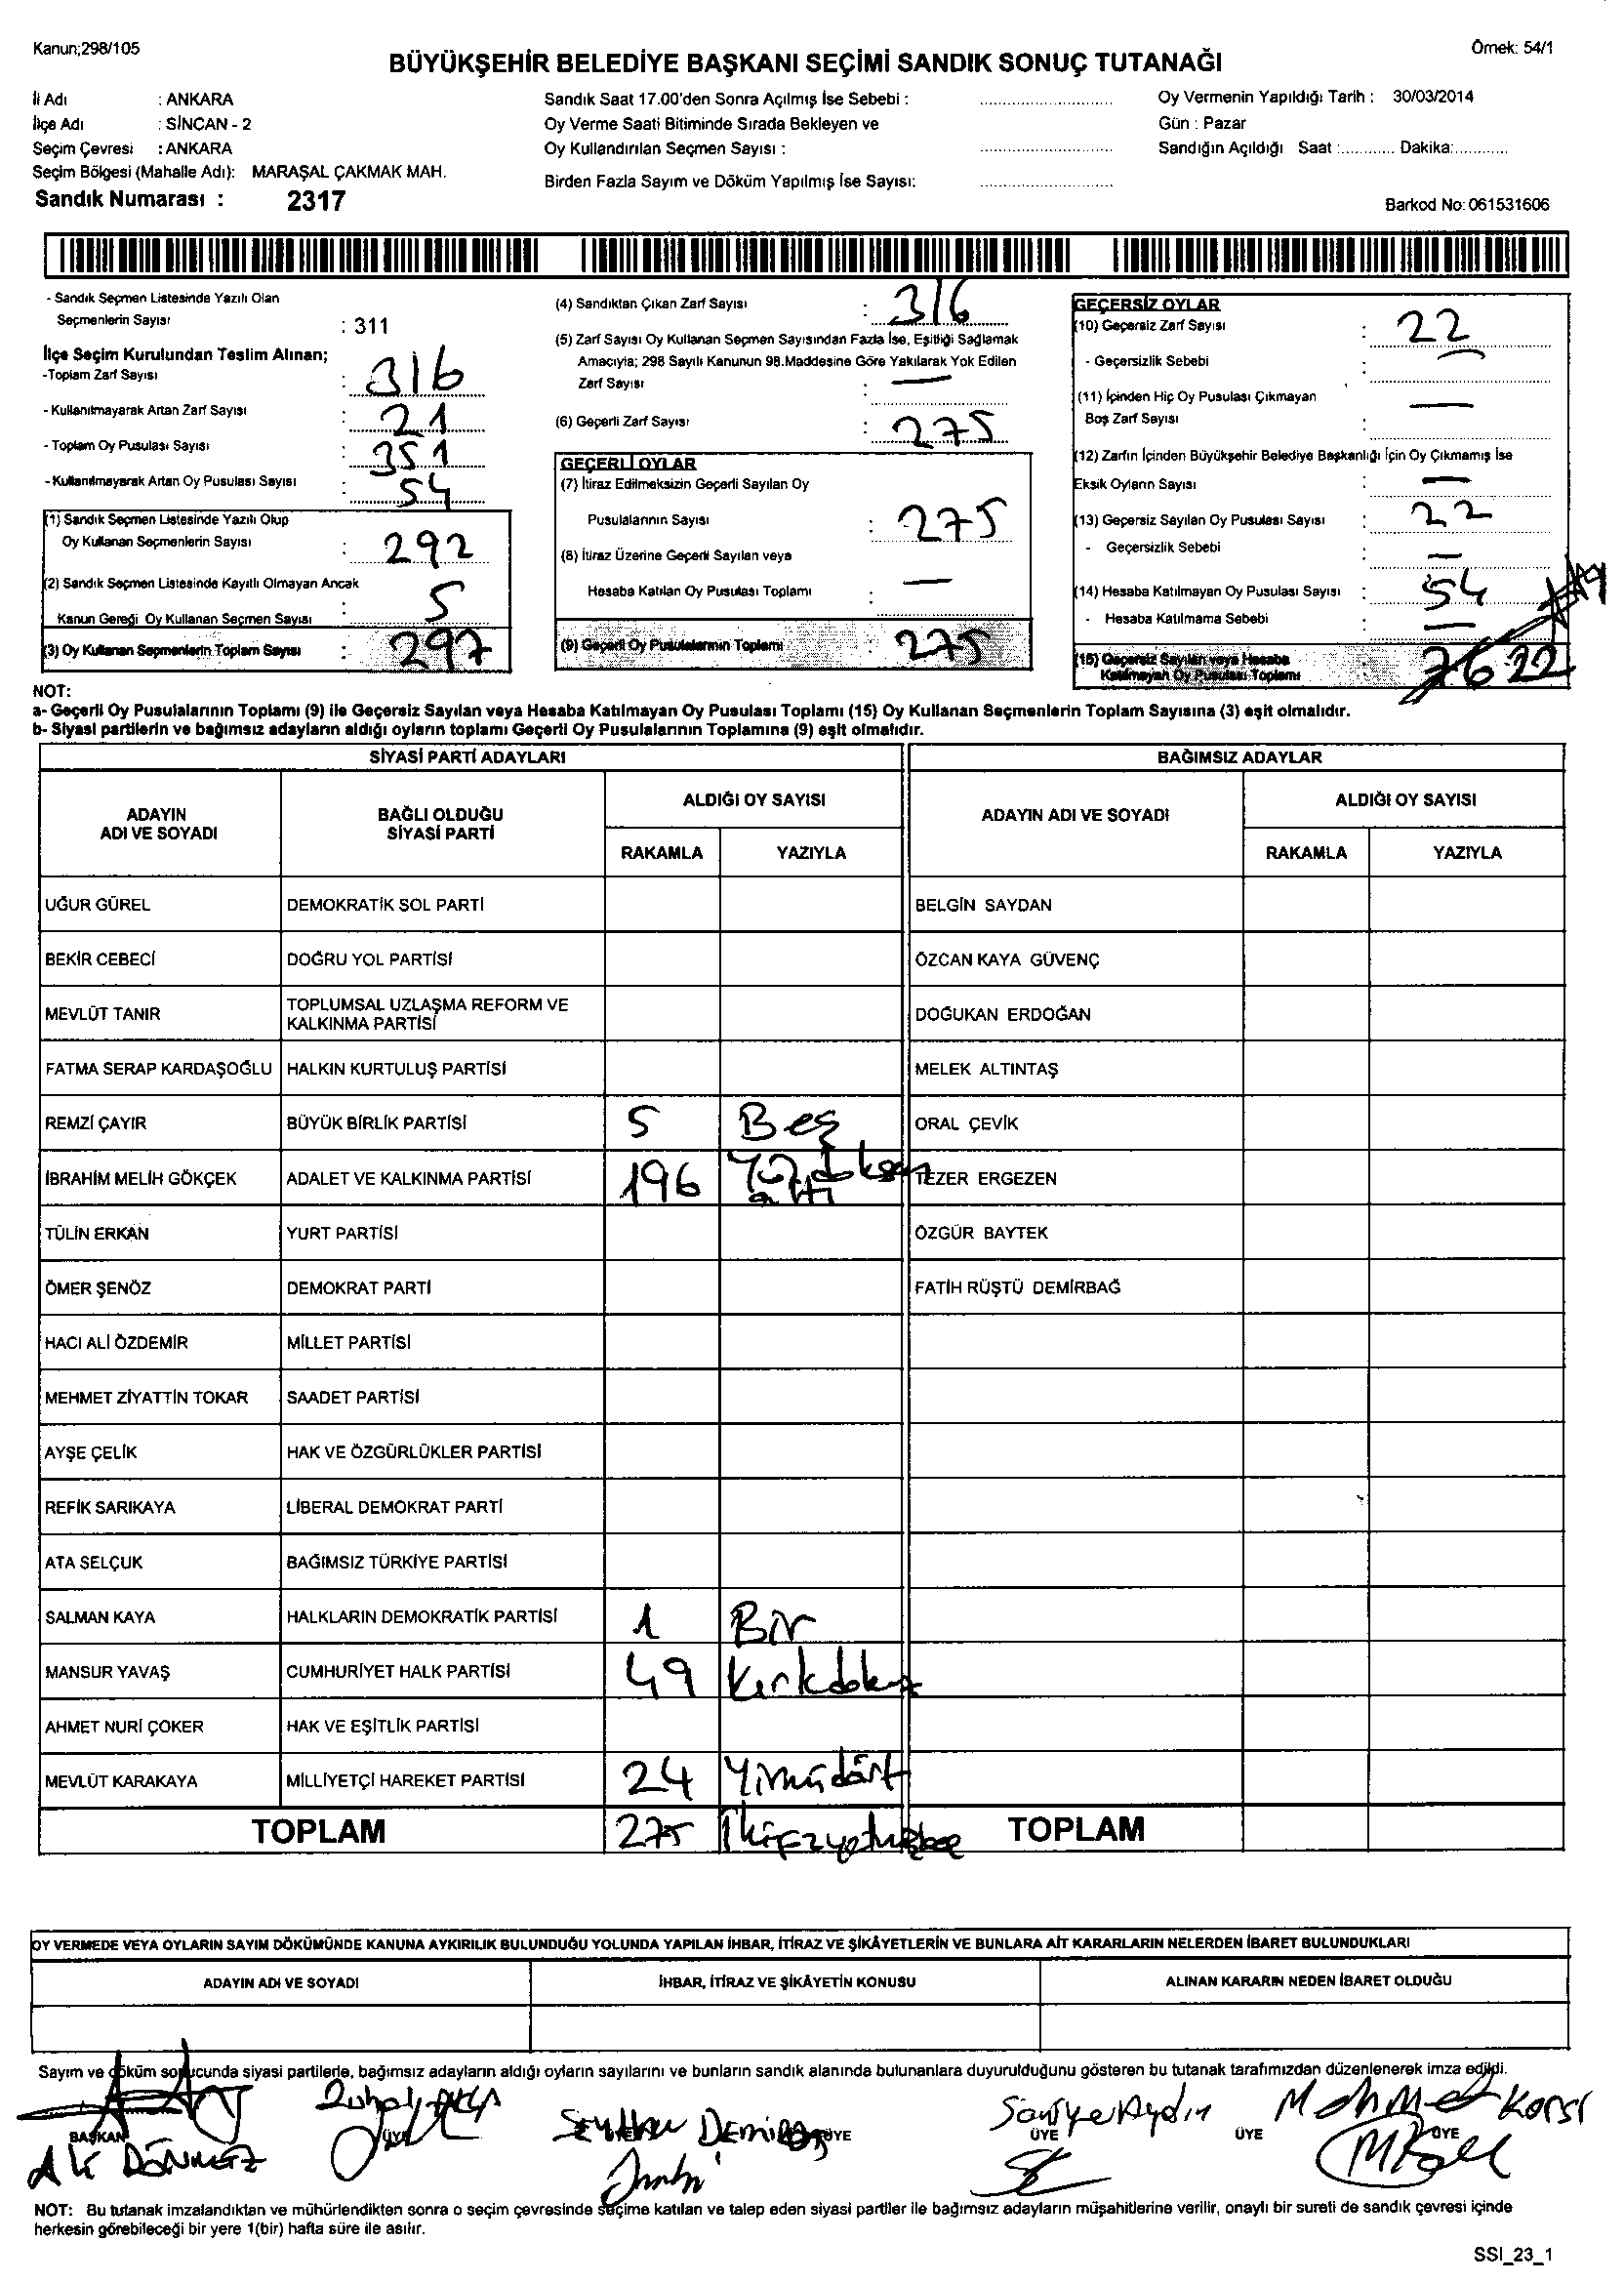 Kanun;298/105
Örnek: 54/1
BÜYÜKŞEHİR BELEDİYE BAŞKANI SEÇİMİ SANDIK SONUÇ TUTANAĞI
İl Adı : ANKARA
İlçe Adı : SİNCAN - 2
Seçim Çevresi : ANKARA
Seçim Bölgesi (Mahalle Adı): MARAŞAL ÇAKMAK MAH.
Sandık Numarası : 2317
Sandık Saat 17.00'den Sonra Açılmış İse Sebebi :
Oy Verme Saati Bitiminde Sırada Bekleyen ve
Oy Kullandırılan Seçmen Sayısı :
Birden Fazla Sayım ve Döküm Yapılmış İse Sayısı:
Oy Vermenin Yapıldığı Tarih : 30/03/2014
Gün : Pazar
Sandığın Açıldığı Saat :............ Dakika:............
Barkod No: 061531606
- Sandık Seçmen Listesinde Yazılı Olan
Seçmenlerin Sayısı : 311
İlçe Seçim Kurulundan Teslim Alınan;
-Toplam Zarf Sayısı : 316
- Kullanılmayarak Artan Zarf Sayısı : 21
- Toplam Oy Pusulası Sayısı : 351
- Kullanılmayarak Artan Oy Pusulası Sayısı : 54
(1) Sandık Seçmen Listesinde Yazılı Olup
Oy Kullanan Seçmenlerin Sayısı : 292
(2) Sandık Seçmen Listesinde Kayıtlı Olmayan Ancak
Kanun Gereği Oy Kullanan Seçmen Sayısı : 5
(3) Oy Kullanan Seçmenlerin Toplam Sayısı : 297
(4) Sandıktan Çıkan Zarf Sayısı : 316
(5) Zarf Sayısı Oy Kullanan Seçmen Sayısından Fazla İse, Eşitliği Sağlamak
Amacıyla; 298 Sayılı Kanunun 98.Maddesine Göre Yakılarak Yok Edilen
Zarf Sayısı : —
(6) Geçerli Zarf Sayısı : 275
GEÇERLİ OYLAR
(7) İtiraz Edilmeksizin Geçerli Sayılan Oy
Pusulalarının Sayısı : 275
(8) İtiraz Üzerine Geçerli Sayılan veya
Hesaba Katılan Oy Pusulası Toplamı : —
(9) Geçerli Oy Pusulalarının Toplamı : 275
GEÇERSİZ OYLAR
(10) Geçersiz Zarf Sayısı : 22
- Geçersizlik Sebebi : —
(11) İçinden Hiç Oy Pusulası Çıkmayan
Boş Zarf Sayısı : —
(12) Zarfın İçinden Büyükşehir Belediye Başkanlığı İçin Oy Çıkmamış İse
Eksik Oyların Sayısı : —
(13) Geçersiz Sayılan Oy Pusulası Sayısı : 22
- Geçersizlik Sebebi : —
(14) Hesaba Katılmayan Oy Pusulası Sayısı : 54
- Hesaba Katılmama Sebebi : —
(15) Geçersiz Sayılan veya Hesaba
Katılmayan Oy Pusulası Toplamı 76 22
NOT:
a- Geçerli Oy Pusulalarının Toplamı (9) ile Geçersiz Sayılan veya Hesaba Katılmayan Oy Pusulası Toplamı (15) Oy Kullanan Seçmenlerin Toplam Sayısına (3) eşit olmalıdır.
b- Siyasi partilerin ve bağımsız adayların aldığı oyların toplamı Geçerli Oy Pusulalarının Toplamına (9) eşit olmalıdır.
SİYASİ PARTİ ADAYLARI
BAĞIMSIZ ADAYLAR
ADAYIN ADI VE SOYADI
BAĞLI OLDUĞU SİYASİ PARTİ
ALDIĞI OY SAYISI
RAKAMLA YAZIYLA
ADAYIN ADI VE SOYADI
ALDIĞI OY SAYISI
RAKAMLA YAZIYLA
UĞUR GÜREL DEMOKRATİK SOL PARTİ BELGİN SAYDAN
BEKİR CEBECİ DOĞRU YOL PARTİSİ ÖZCAN KAYA GÜVENÇ
MEVLÜT TANIR TOPLUMSAL UZLAŞMA REFORM VE KALKINMA PARTİSİ DOĞUKAN ERDOĞAN
FATMA SERAP KARDAŞOĞLU HALKIN KURTULUŞ PARTİSİ MELEK ALTINTAŞ
REMZİ ÇAYIR BÜYÜK BİRLİK PARTİSİ 5 Beş ORAL ÇEVİK
İBRAHİM MELİH GÖKÇEK ADALET VE KALKINMA PARTİSİ 196 Yüzdoksan altı TEZER ERGEZEN
TÜLİN ERKAN YURT PARTİSİ ÖZGÜR BAYTEK
ÖMER ŞENÖZ DEMOKRAT PARTİ FATİH RÜŞTÜ DEMİRBAĞ
HACI ALİ ÖZDEMİR MİLLET PARTİSİ
MEHMET ZİYATTİN TOKAR SAADET PARTİSİ
AYŞE ÇELİK HAK VE ÖZGÜRLÜKLER PARTİSİ
REFİK SARIKAYA LİBERAL DEMOKRAT PARTİ
ATA SELÇUK BAĞIMSIZ TÜRKİYE PARTİSİ
SALMAN KAYA HALKLARIN DEMOKRATİK PARTİSİ 1 Bir
MANSUR YAVAŞ CUMHURİYET HALK PARTİSİ 49 Kırkdokuz
AHMET NURİ ÇOKER HAK VE EŞİTLİK PARTİSİ
MEVLÜT KARAKAYA MİLLİYETÇİ HAREKET PARTİSİ 24 Yirmidört
TOPLAM 275 TOPLAM
OY VERMEDE VEYA OYLARIN SAYIM DÖKÜMÜNDE KANUNA AYKIRILIK BULUNDUĞU YOLUNDA YAPILAN İHBAR, İTİRAZ VE ŞİKÂYETLERİN VE BUNLARA AİT KARARLARIN NELERDEN İBARET BULUNDUKLARI
ADAYIN ADI VE SOYADI İHBAR, İTİRAZ VE ŞİKÂYETİN KONUSU ALINAN KARARIN NEDEN İBARET OLDUĞU
Sayım ve döküm sonucunda siyasi partilerle, bağımsız adayların aldığı oyların sayılarını ve bunların sandık alanında bulunanlara duyurulduğunu gösteren bu tutanak tarafımızdan düzenlenerek imza edildi.
Saniye Aydın Mehmet
BAŞKAN ÜYE ÜYE ÜYE ÜYE ÜYE
Ali DÖNMEZ
NOT: Bu tutanak imzalandıktan ve mühürlendikten sonra o seçim çevresinde seçime katılan ve talep eden siyasi partiler ile bağımsız adayların müşahitlerine verilir, onaylı bir sureti de sandık çevresi içinde
herkesin görebileceği bir yere 1(bir) hafta süre ile asılır.
SSI_23_1